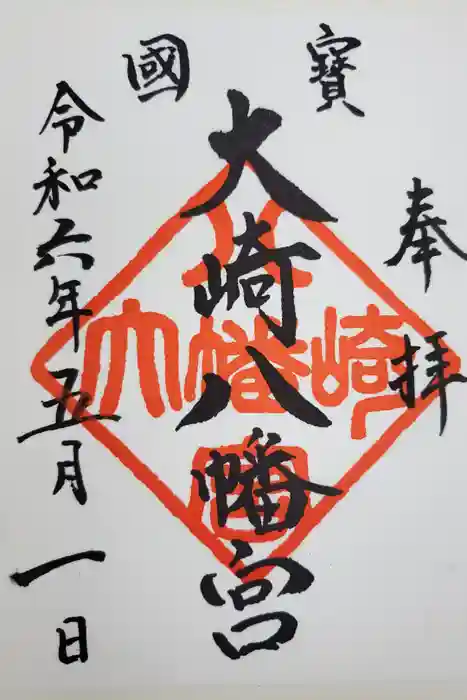 奉拝
寶國
大崎八幡宮
令和六年五月一日
八
大幡崎
宮